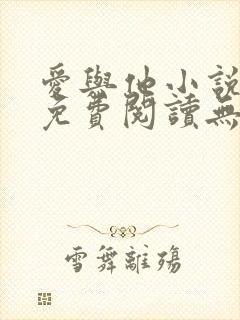 愛與他小說
免費閱讀無
雪舞離殤